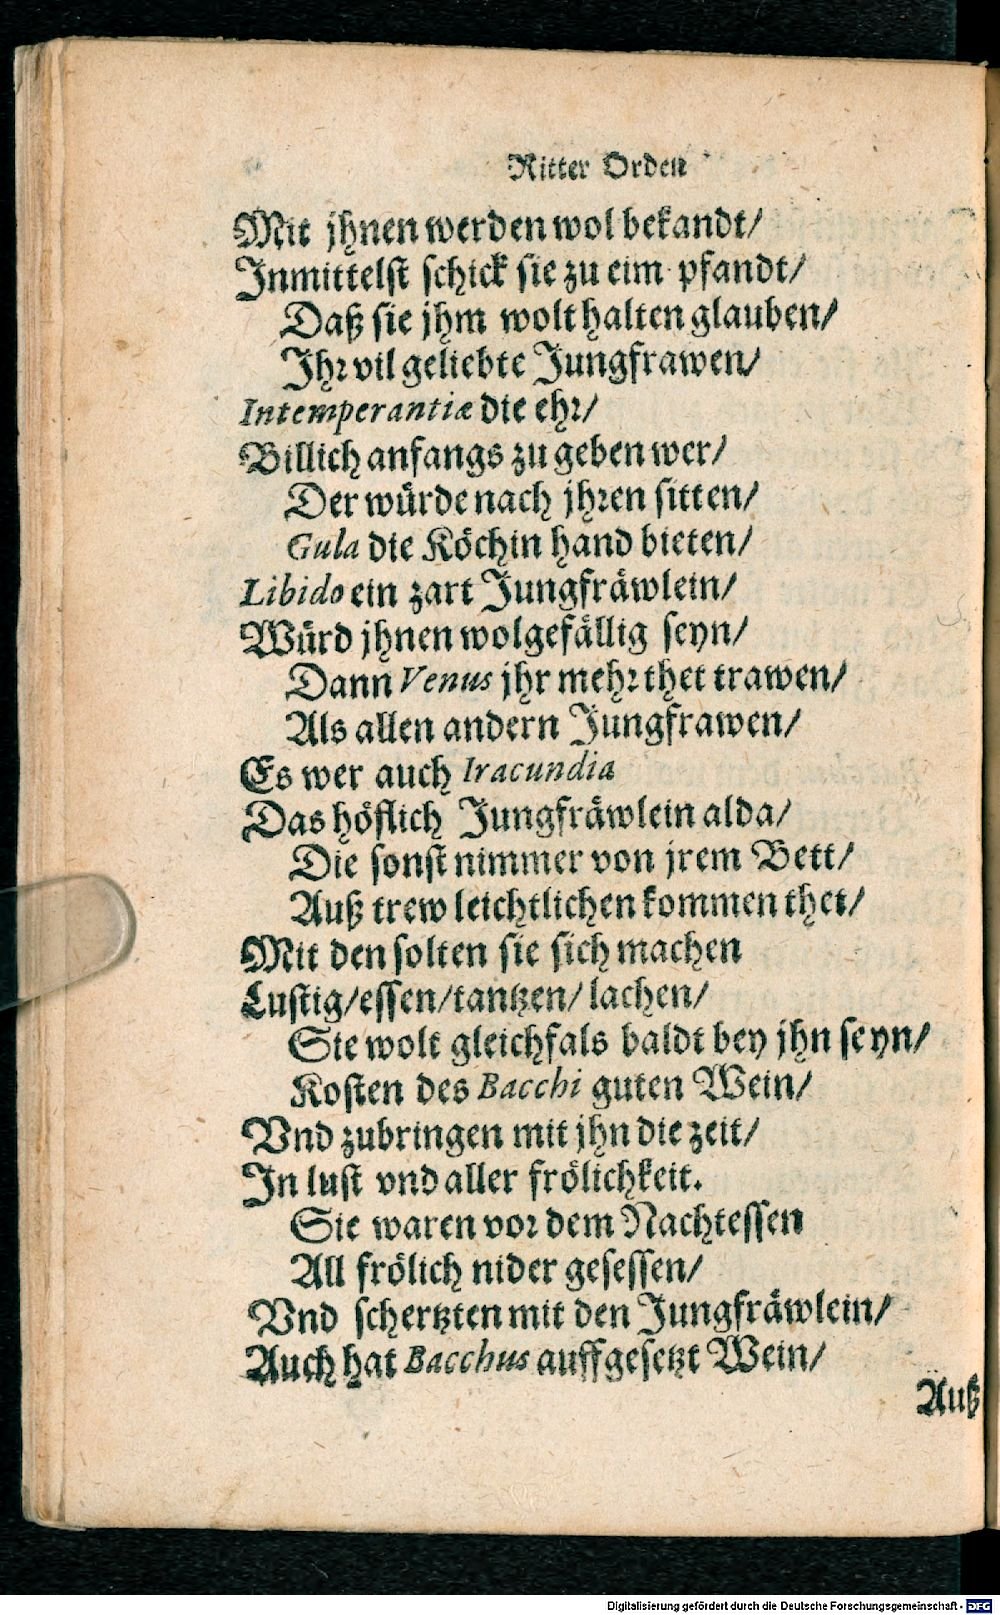 Ritter Orden
Mit jhnen werden wol bekandt/
Inmittelst schick sie zu eim pfandt/
Daß sie jhm wolt halten glauben/
Ihr vil geliebte Jungfrawen/
Intemperantiæ die ehr/
Billich anfangs zu geben wer/
Der würde nach jhren sitten/
Gula die Köchin hand bieten/
Libido ein zart Jungfräwlein/
Würd jhnen wolgefällig seyn/
Dann Venus jhr mehr thet trawen/
Als allen andern Jungfrawen/
Es wer auch Iracundia
Das höflich Jungfräwlein alda/
Die sonst nimmer von jrem Bett/
Auß trew leichtlichen kommen thet/
Mit den solten sie sich machen
Lustig/essen/tantzen/lachen/
Sie wolt gleichfals baldt bey jhn seyn/
Kosten des Bacchi guten Wein/
Vnd zubringen mit jhn die zeit/
In lust vnd aller frölichkeit.
Sie waren vor dem Nachtessen
All frölich nider gesessen/
Vnd schertzten mit den Jungfräwlein/
Auch hat Bacchus auffgesetzt Wein/
Auß
Digitalisierung gefördert durch die Deutsche Forschungsgemeinschaft - DFG